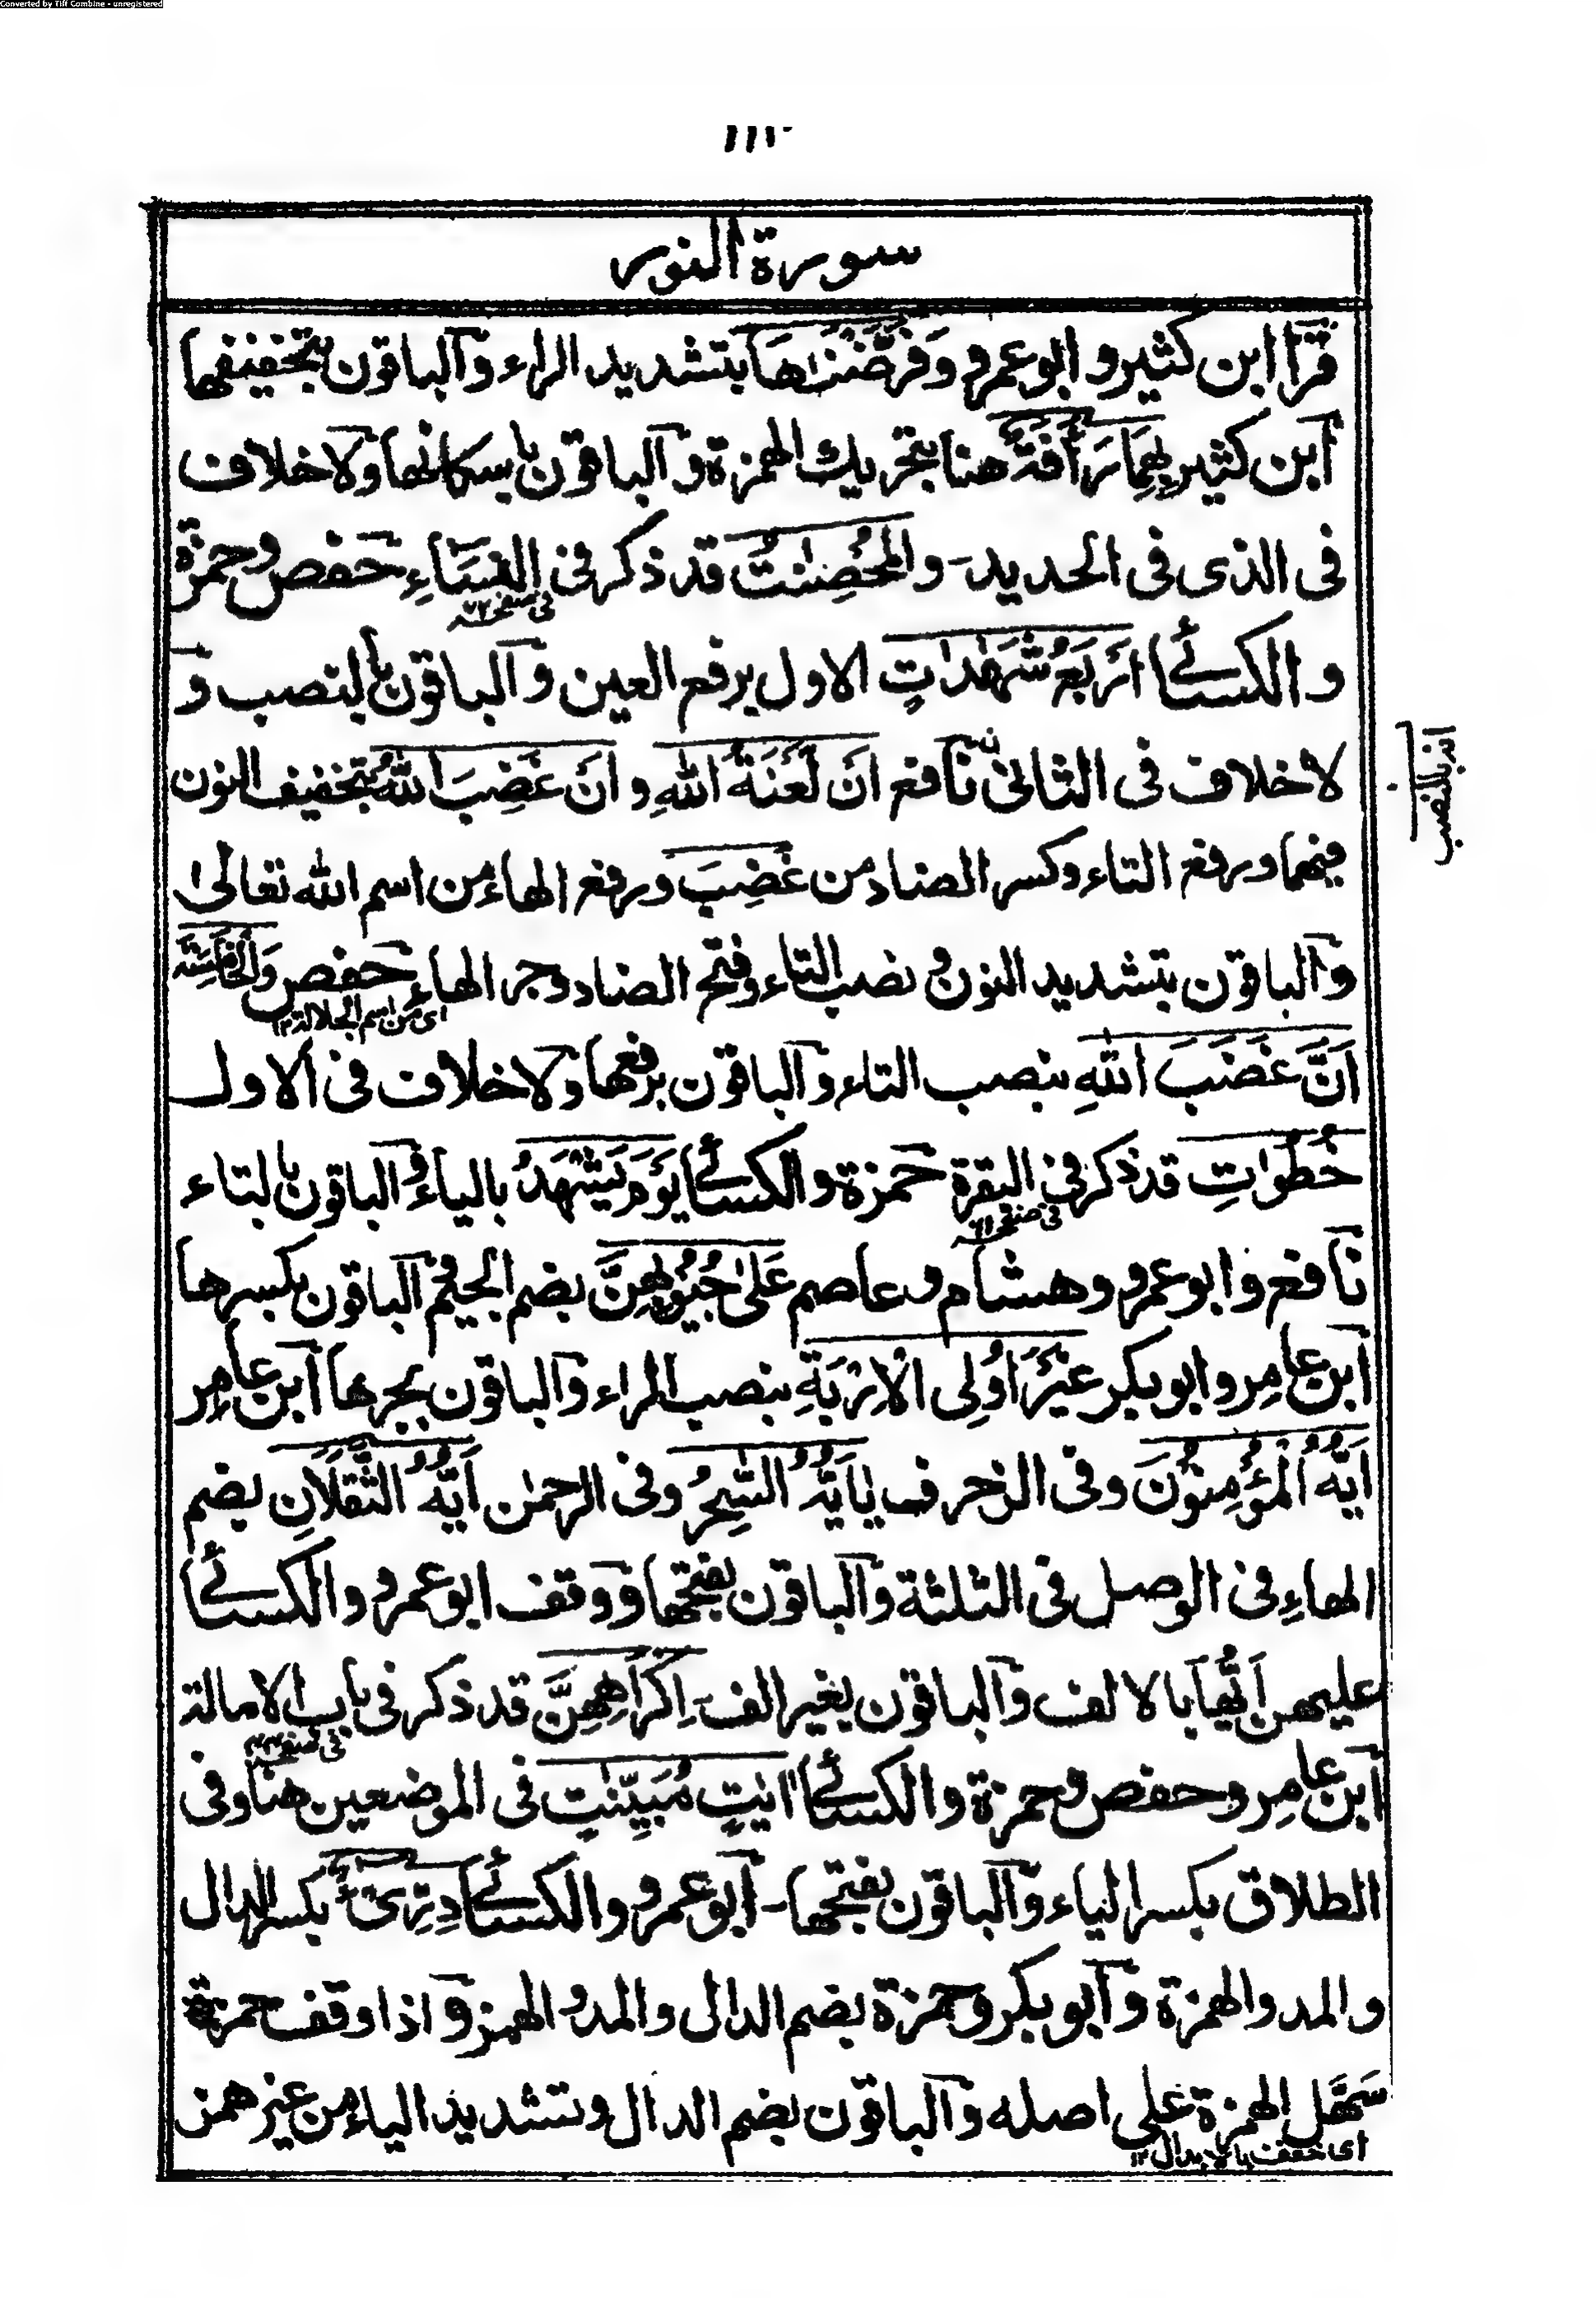 Converted by Tiff Combine - unregistered
سورة النور
قرا ابن كثير و ابو عمرو وَفَرَّضْنٰهَا بتشديد الراء والباقون بتخفيفها
ابن كثير بِهِمَا رَأَفَةٌ هنا بتحريك الهمزة والباقون باسكانها ولا خلاف
فى الذى فى الحديد- والْمُحْصِنٰتُ قد ذكر فى النساءِ حفص وحمزة
فى صفحه ٧٢
و الكسائے اَرْبَعُ شَهٰدٰتٍ الاول برفع العين والباقون بالنصب و
لا خلاف فى الثانى نافع اَنْ لَعْنَةُ اللهِ و اَنْ غَضِبَ اللهُ بتخفيف النون
اند بالنصب
فيهما ورفع التاء وكسر الضاد من غَضِبَ ورفع الهاء من اسم الله تعالىٰ
والباقون بتشديد النون و نصب التاء وفتح الضاد وجر الهاءِ حفص وَالْخَامِسَةَ
اى من اسم الجلالة ١٢
اَنَّ غَضَبَ اللهِ بنصب التاء والباقون برفعها ولا خلاف فى الاول
خُطُوٰتِ قد ذكر فى البقرة حمزة والكسائے يَوْمَ يَشْهَدُ بالياء والباقون بالتاء
فى صفحه ٦١
نافع وابو عمرو وهشام وعاصم عَلىٰ جُيُوْبِهِنَّ بضم الجيم والباقون بكسرها
ابن عامِر وابو بكر غَيْرَ اُولِى الْاِرْبَةِ بنصب الراء والباقون بجرها ابن عامِر
اَيُّهُ الْمُؤْمِنُوْنَ وفى الزخرف يٰاَيُّهُ السّٰحِرُ وفى الرحمٰن اَيُّهُ الثَّقَلَانِ بضم
الهاءِ فى الوصل فى الثلثة والباقون بفتحها ووقف ابو عمرو والكسائے
عليهن اَيُّهَا بالالف والباقون بغير الف- اِكْرَاهِهِنَّ قد ذكر فى باب الامالة
فى صفحه ٤٣
ابن عامِر وحفص وحمزة والكسائے اٰيٰتٍ مُبَيِّنٰتٍ فى الموضعين هنا وفى
الطلاق بكسر الياء والباقون بفتحها- ابو عمرو والكسائے دِرِّىْءٌ بكسر الدال
والمد والهمزة وابو بكر وحمزة بضم الدال والمد والهمز واذا وقف حمزة
سَهَّل الهمزة على اصله والباقون بضم الدال وتشديد الياء من غير همز
اى خفف بالابدال ١٢